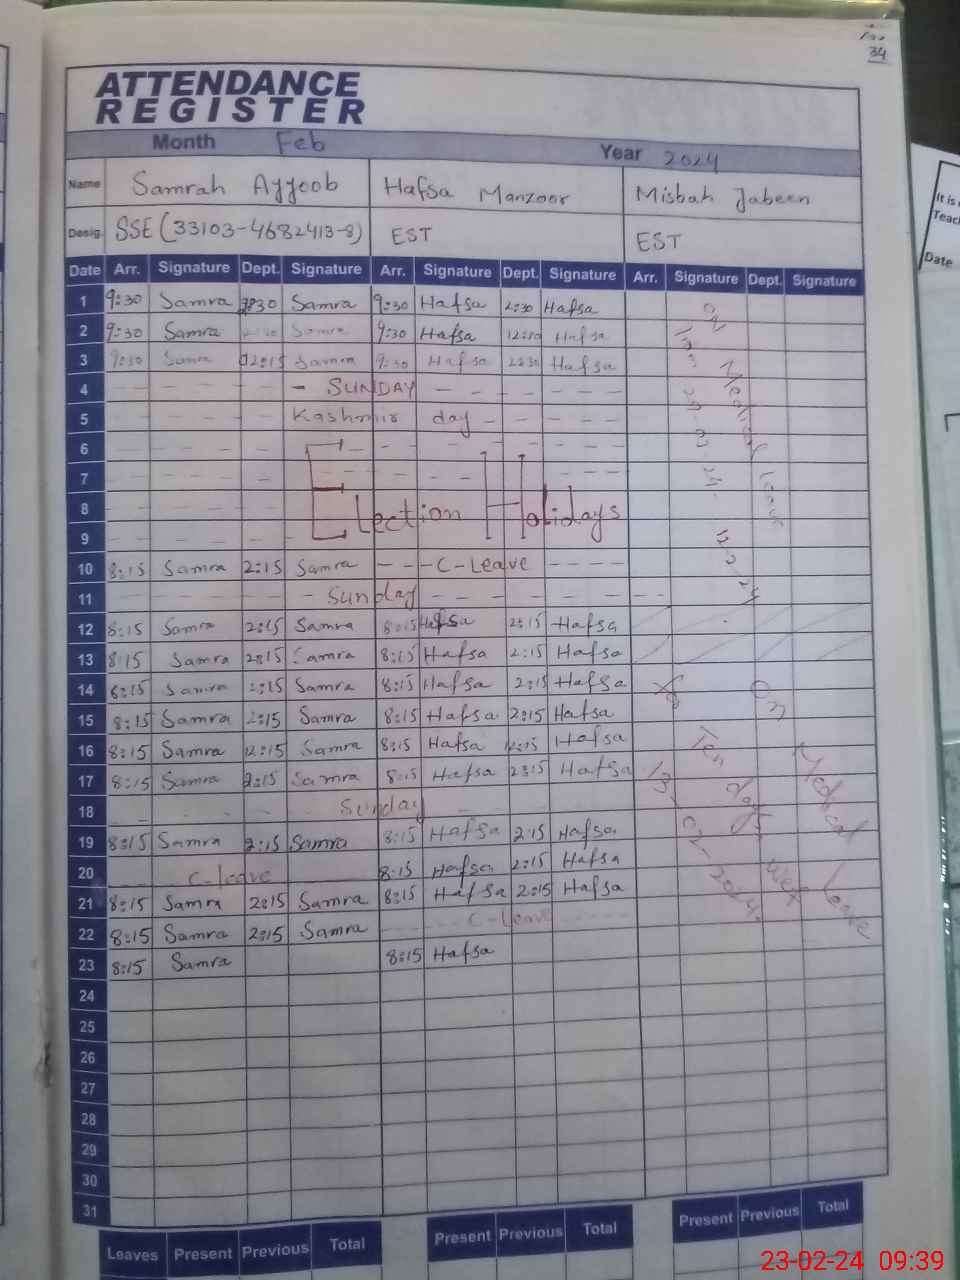 34
ATTENDANCE
REGISTER
Month Feb Year 2024
Name Samrah Ayyoob Hafsa Manzoor Misbah Jabeen
Desig. SSE (33103-4682413-8) EST EST
Date Arr. Signature Dept. Signature Arr. Signature Dept. Signature Arr. Signature Dept. Signature
1 9:30 Samra Samra 9:30 Hafsa 2:30 Hafsa
2 9:30 Samra Samra 9:30 Hafsa Hafsa
3 9:30 Samra 12:15 Samra 9:30 Hafsa Hafsa
4 - SUNDAY
5 Kashmir day
6
7
8 Election Holidays
9
10 8:15 Samra 2:15 Samra C-Leave
11 Sunday
12 8:15 Samra 2:15 Samra 8:15 Hafsa 2:15 Hafsa
13 8:15 Samra 2:15 Samra 8:15 Hafsa 2:15 Hafsa
14 8:15 Samra 2:15 Samra 8:15 Hafsa 2:15 Hafsa
15 8:15 Samra 2:15 Samra 8:15 Hafsa 2:15 Hafsa
16 8:15 Samra 12:15 Samra 8:15 Hafsa 12:15 Hafsa
17 8:15 Samra 2:15 Samra 8:15 Hafsa 2:15 Hafsa
18 Sunday
19 8:15 Samra 2:15 Samra 8:15 Hafsa 2:15 Hafsa
20 C-leave 8:15 Hafsa 2:15 Hafsa
21 8:15 Samra 2:15 Samra 8:15 Hafsa 2:15 Hafsa
22 8:15 Samra 2:15 Samra C-Leave
23 8:15 Samra 8:15 Hafsa
24
25
26
27
28
29
30
31
on Medical leave
On Medical Leave
Ten days wef
13-02-2024
Leaves Present Previous Total Present Previous Total Present Previous Total
It is
Teac
Date
23-02-24 09:39